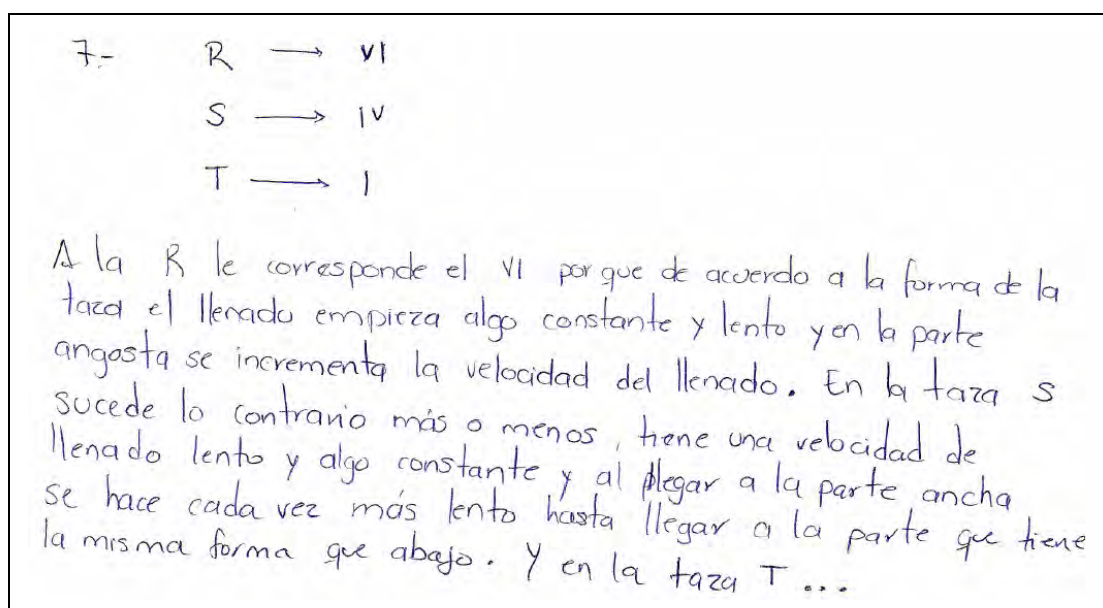 7.- R → VI
S → IV
T → I
A la R le corresponde el VI porque de acuerdo a la forma de la
taza el llenado empieza algo constante y lento y en la parte
angosta se incrementa la velocidad del llenado. En la taza S
sucede lo contrario más o menos, tiene una velocidad de
llenado lento y algo constante y al llegar a la parte ancha
se hace cada vez más lento hasta llegar a la parte que tiene
la misma forma que abajo. Y en la taza T ...